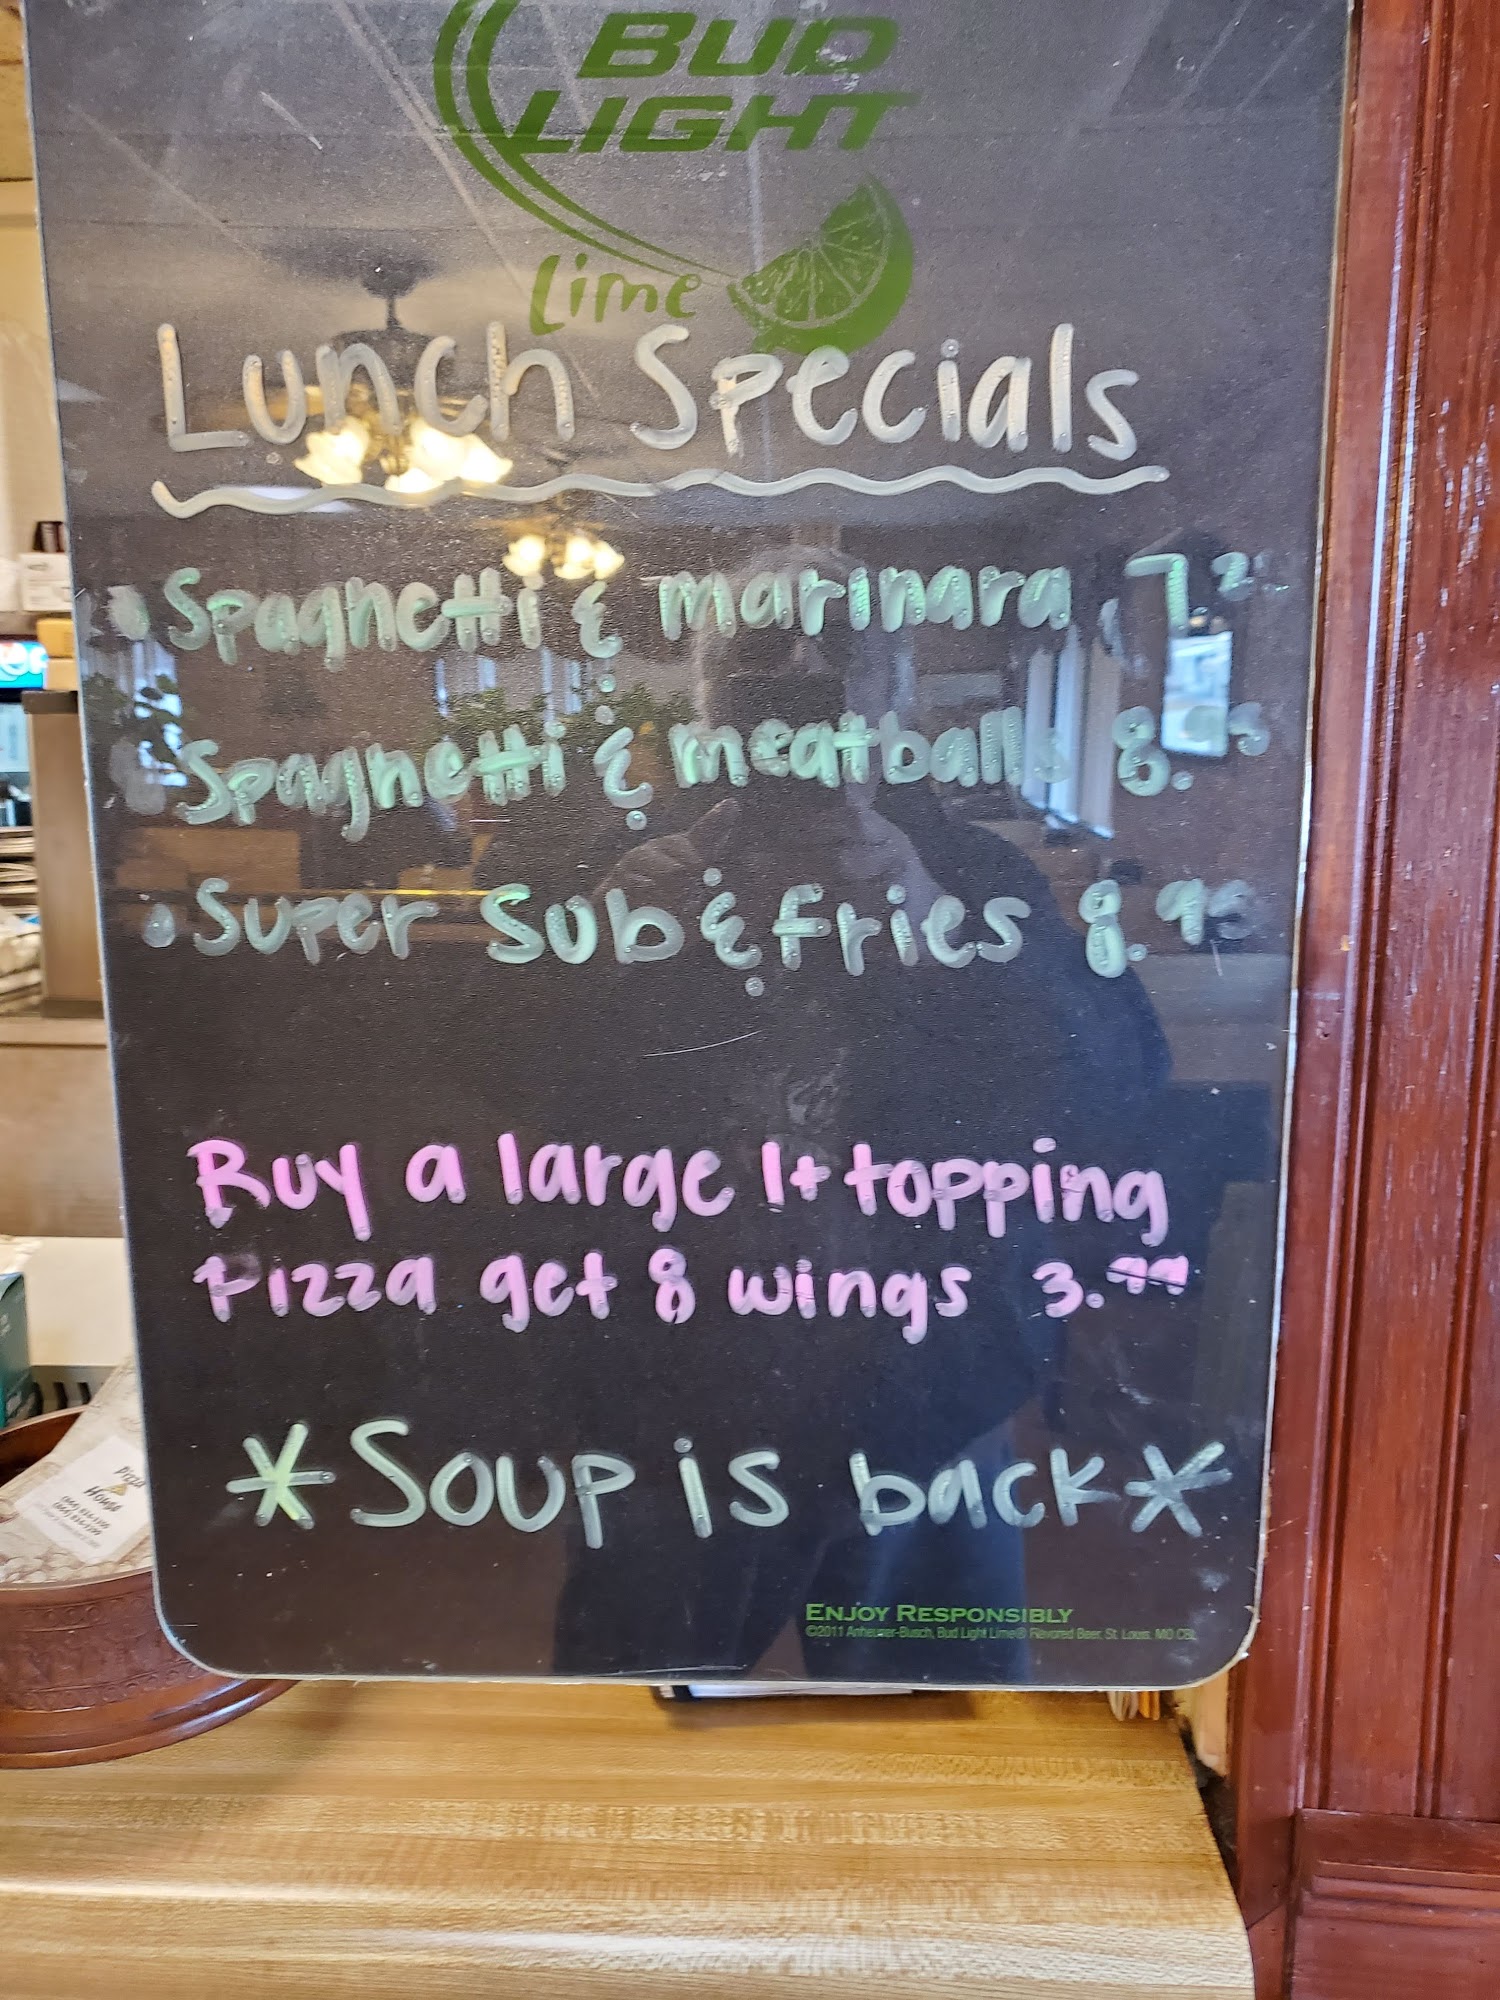 BUD
LIGHT
Lime
Lunch Specials
• Spaghetti & marinara 7.
• Spaghetti & meatballs 8.95
• Super Sub & fries 8.95
Buy a large 1+ topping
Pizza get 8 wings 3.99
*Soup is back*
ENJOY RESPONSIBLY
©2011 Anheuser-Busch, Bud Light Lime® Flavored Beer, St. Louis, MO
Pizza
House